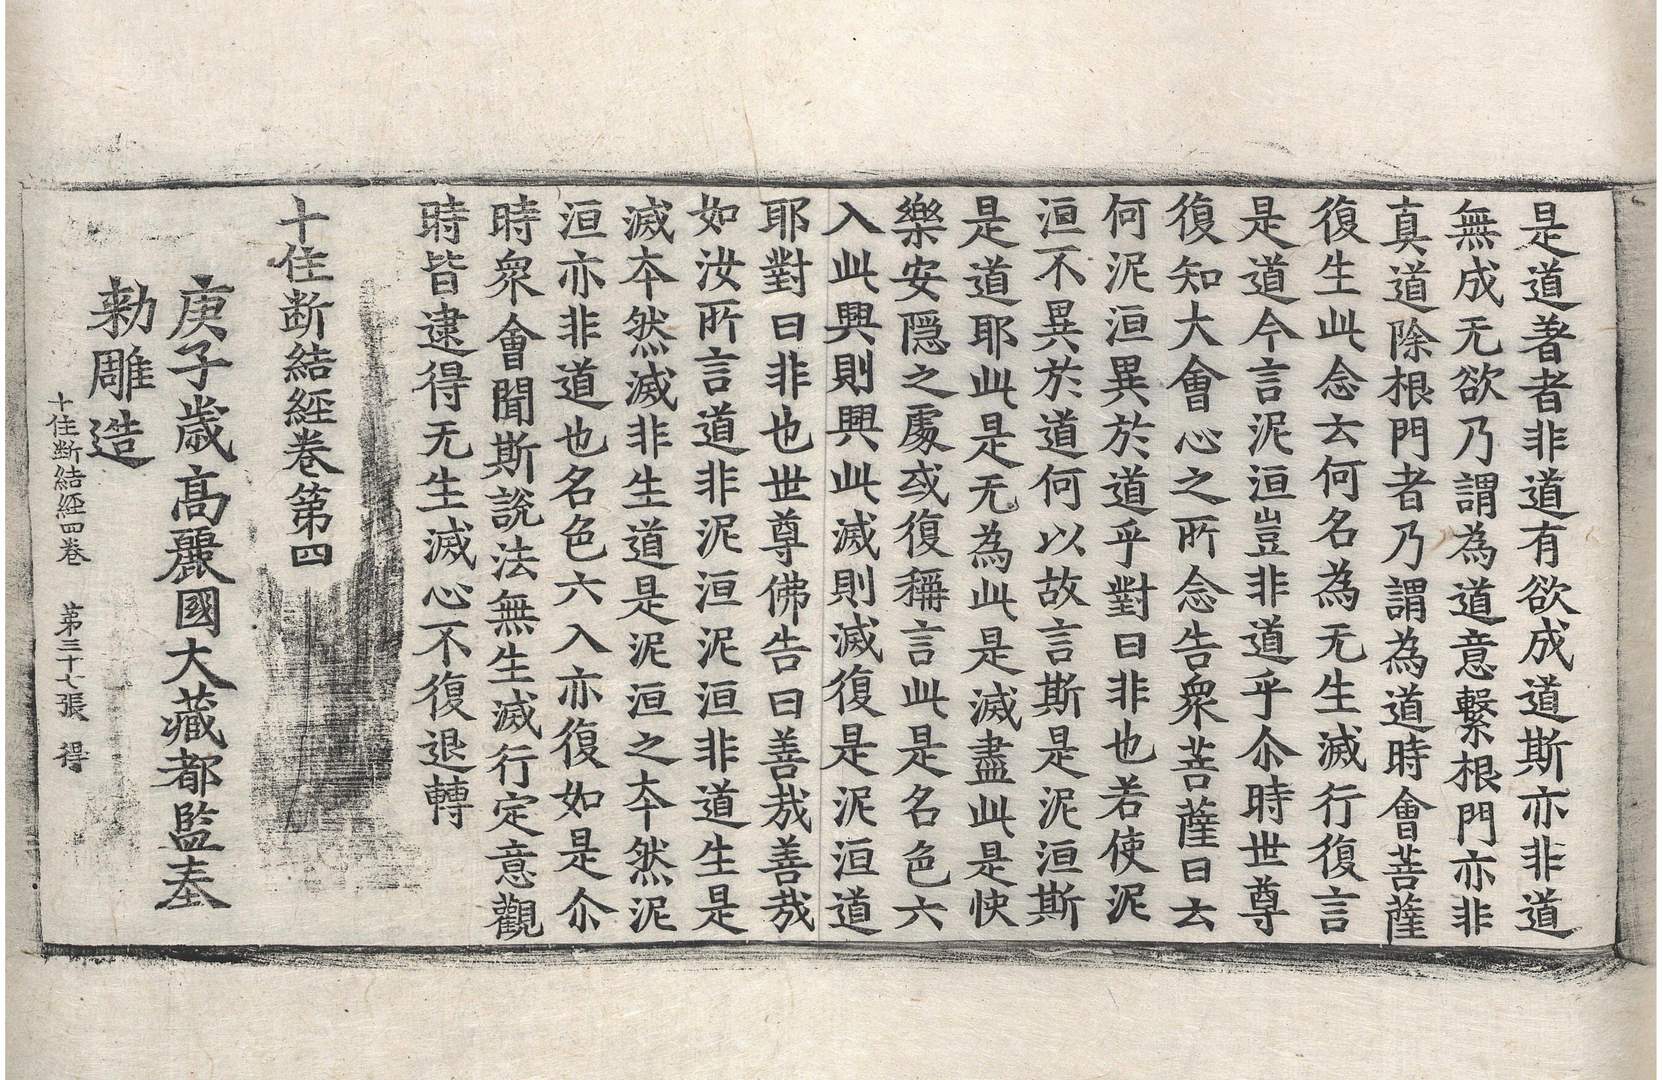 是道著者非道有欲成道斯亦非道
無成无欲乃謂為道意繫根門亦非
真道除根門者乃謂為道時會菩薩
復生此念云何名為无生滅行復言
是道今言泥洹豈非道乎尒時世尊
復知大會心之所念告衆菩薩曰云
何泥洹異於道乎對曰非也若使泥
洹不異於道何以故言斯是泥洹斯
是道耶此是无為此是滅盡此是快
樂安隱之處或復稱言此是名色六
入此興則興此滅則滅復是泥洹道
耶對曰非也世尊佛告曰善哉善哉
如汝所言道非泥洹泥洹非道生是
滅夲然滅非生道是泥洹之夲然泥
洹亦非道也名色六入亦復如是尒
時衆會聞斯說法無生滅行定意觀
時皆逮得无生滅心不復退轉
十住断結經卷第四
庚子歳高麗國大藏都監奉
勅雕造
十住斷結経四卷 第三十七張 得